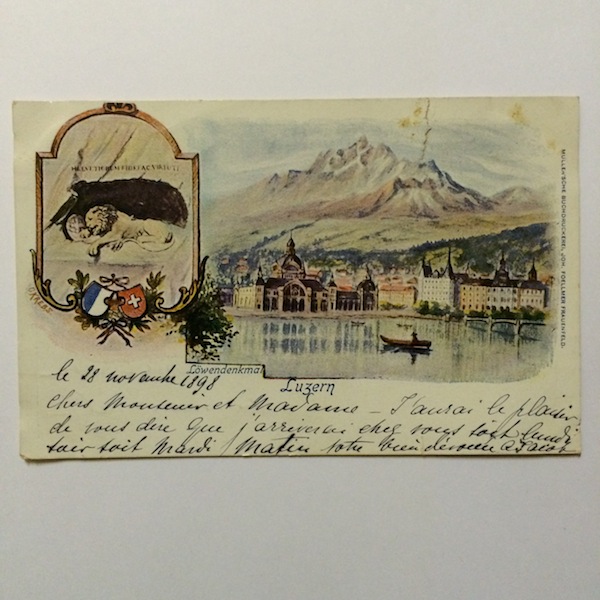 HELVETIORUM FIDEI AC VIRTUTI
Löwendenkmal
Luzern
MÜLLER'SCHE BUCHDRUCKEREI, JOH. FOELLMER FRAUENFELD.
le 28 novembre 1898
Chers Monsieur et Madame – J'aurai le plaisir
de vous dire que j'arriverai chez vous soit lundi
soir soit Mardi Matin votre bien dévouée